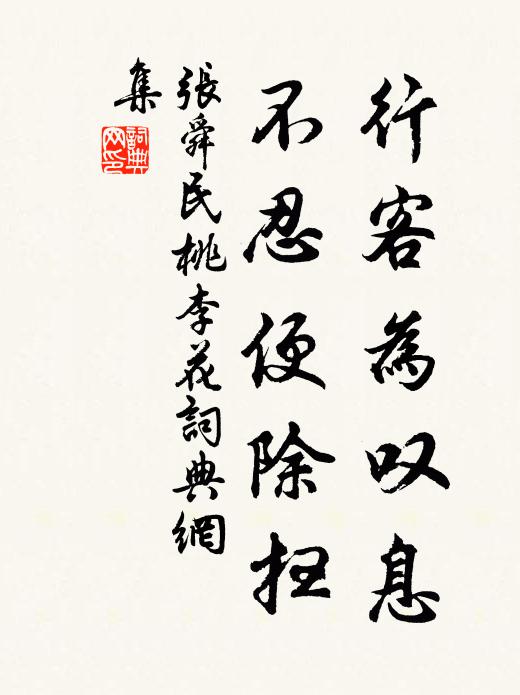 行客為叹息
不忍便除扫
張舜民桃李花詞典網
集
詞典
网印